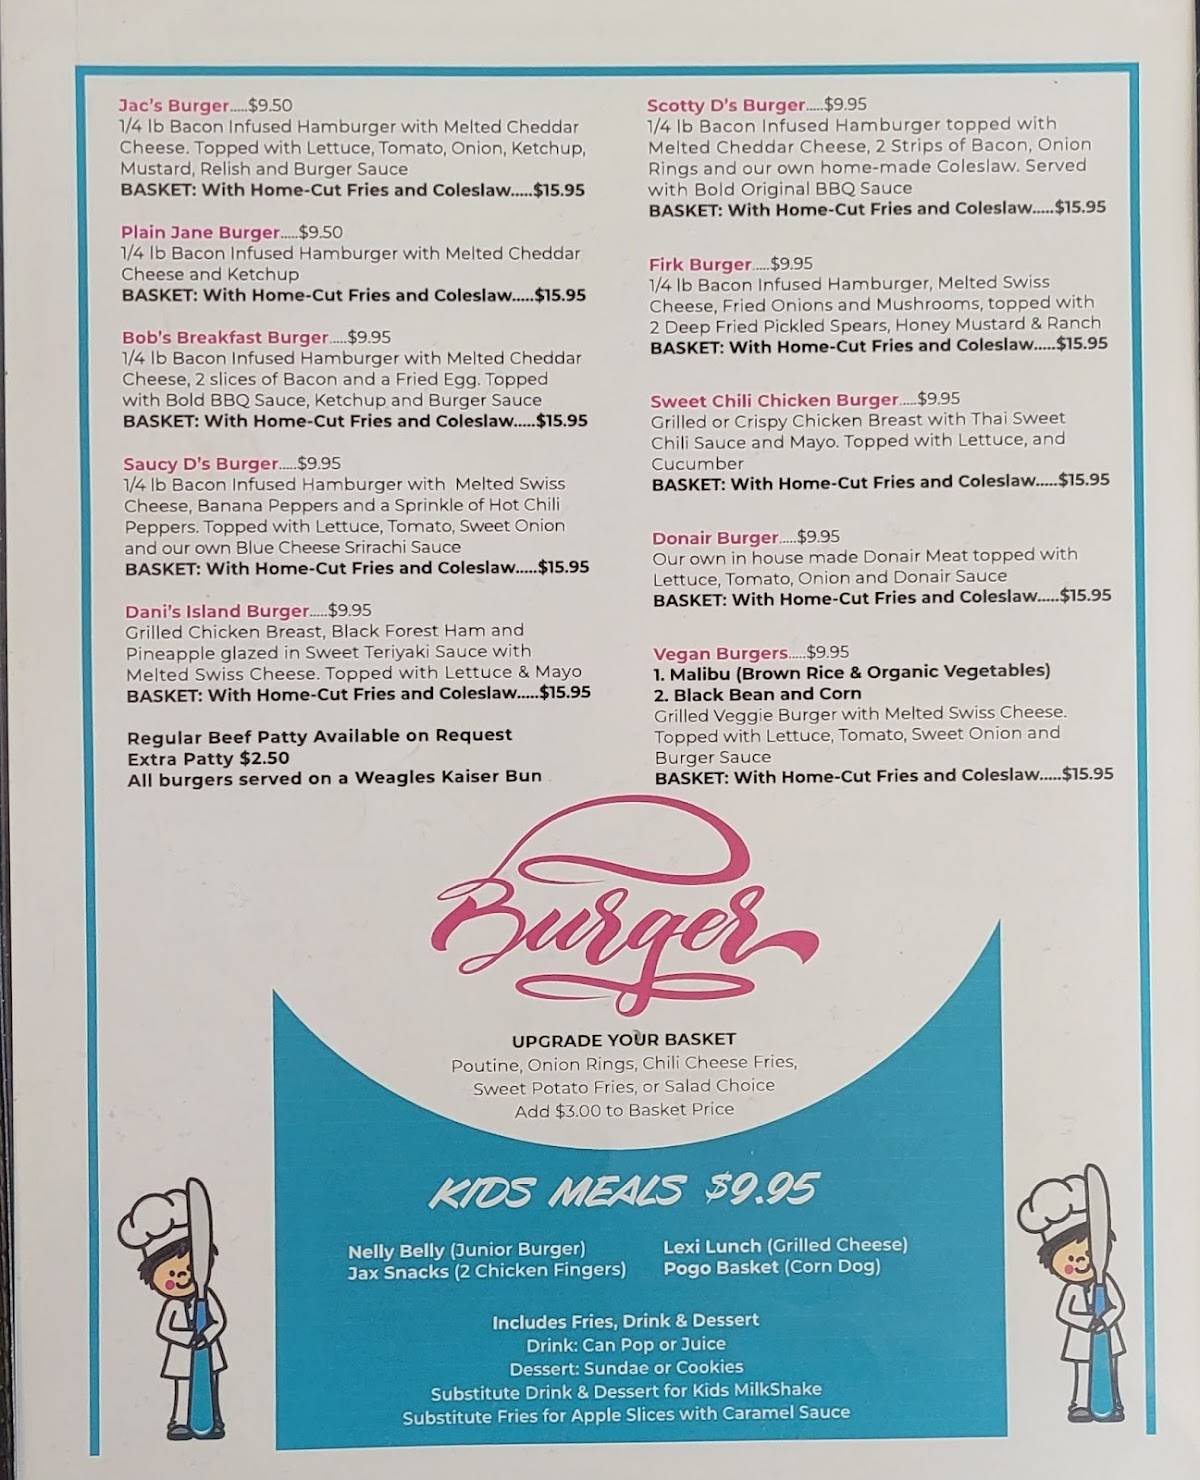 Jac's Burger.....$9.50
1/4 lb Bacon Infused Hamburger with Melted Cheddar
Cheese. Topped with Lettuce, Tomato, Onion, Ketchup,
Mustard, Relish and Burger Sauce
BASKET: With Home-Cut Fries and Coleslaw.....$15.95
Plain Jane Burger.....$9.50
1/4 lb Bacon Infused Hamburger with Melted Cheddar
Cheese and Ketchup
BASKET: With Home-Cut Fries and Coleslaw.....$15.95
Bob's Breakfast Burger.....$9.95
1/4 lb Bacon Infused Hamburger with Melted Cheddar
Cheese, 2 slices of Bacon and a Fried Egg. Topped
with Bold BBQ Sauce, Ketchup and Burger Sauce
BASKET: With Home-Cut Fries and Coleslaw.....$15.95
Saucy D's Burger.....$9.95
1/4 lb Bacon Infused Hamburger with Melted Swiss
Cheese, Banana Peppers and a Sprinkle of Hot Chili
Peppers. Topped with Lettuce, Tomato, Sweet Onion
and our own Blue Cheese Srirachi Sauce
BASKET: With Home-Cut Fries and Coleslaw.....$15.95
Dani's Island Burger.....$9.95
Grilled Chicken Breast, Black Forest Ham and
Pineapple glazed in Sweet Teriyaki Sauce with
Melted Swiss Cheese. Topped with Lettuce & Mayo
BASKET: With Home-Cut Fries and Coleslaw.....$15.95
Regular Beef Patty Available on Request
Extra Patty $2.50
All burgers served on a Weagles Kaiser Bun
Scotty D's Burger.....$9.95
1/4 lb Bacon Infused Hamburger topped with
Melted Cheddar Cheese, 2 Strips of Bacon, Onion
Rings and our own home-made Coleslaw. Served
with Bold Original BBQ Sauce
BASKET: With Home-Cut Fries and Coleslaw.....$15.95
Firk Burger.....$9.95
1/4 lb Bacon Infused Hamburger, Melted Swiss
Cheese, Fried Onions and Mushrooms, topped with
2 Deep Fried Pickled Spears, Honey Mustard & Ranch
BASKET: With Home-Cut Fries and Coleslaw.....$15.95
Sweet Chili Chicken Burger.....$9.95
Grilled or Crispy Chicken Breast with Thai Sweet
Chili Sauce and Mayo. Topped with Lettuce, and
Cucumber
BASKET: With Home-Cut Fries and Coleslaw.....$15.95
Donair Burger.....$9.95
Our own in house made Donair Meat topped with
Lettuce, Tomato, Onion and Donair Sauce
BASKET: With Home-Cut Fries and Coleslaw.....$15.95
Vegan Burgers.....$9.95
1. Malibu (Brown Rice & Organic Vegetables)
2. Black Bean and Corn
Grilled Veggie Burger with Melted Swiss Cheese.
Topped with Lettuce, Tomato, Sweet Onion and
Burger Sauce
BASKET: With Home-Cut Fries and Coleslaw.....$15.95
Burger
UPGRADE YOUR BASKET
Poutine, Onion Rings, Chili Cheese Fries,
Sweet Potato Fries, or Salad Choice
Add $3.00 to Basket Price
KIDS MEALS $9.95
Nelly Belly (Junior Burger)
Jax Snacks (2 Chicken Fingers)
Lexi Lunch (Grilled Cheese)
Pogo Basket (Corn Dog)
Includes Fries, Drink & Dessert
Drink: Can Pop or Juice
Dessert: Sundae or Cookies
Substitute Drink & Dessert for Kids MilkShake
Substitute Fries for Apple Slices with Caramel Sauce